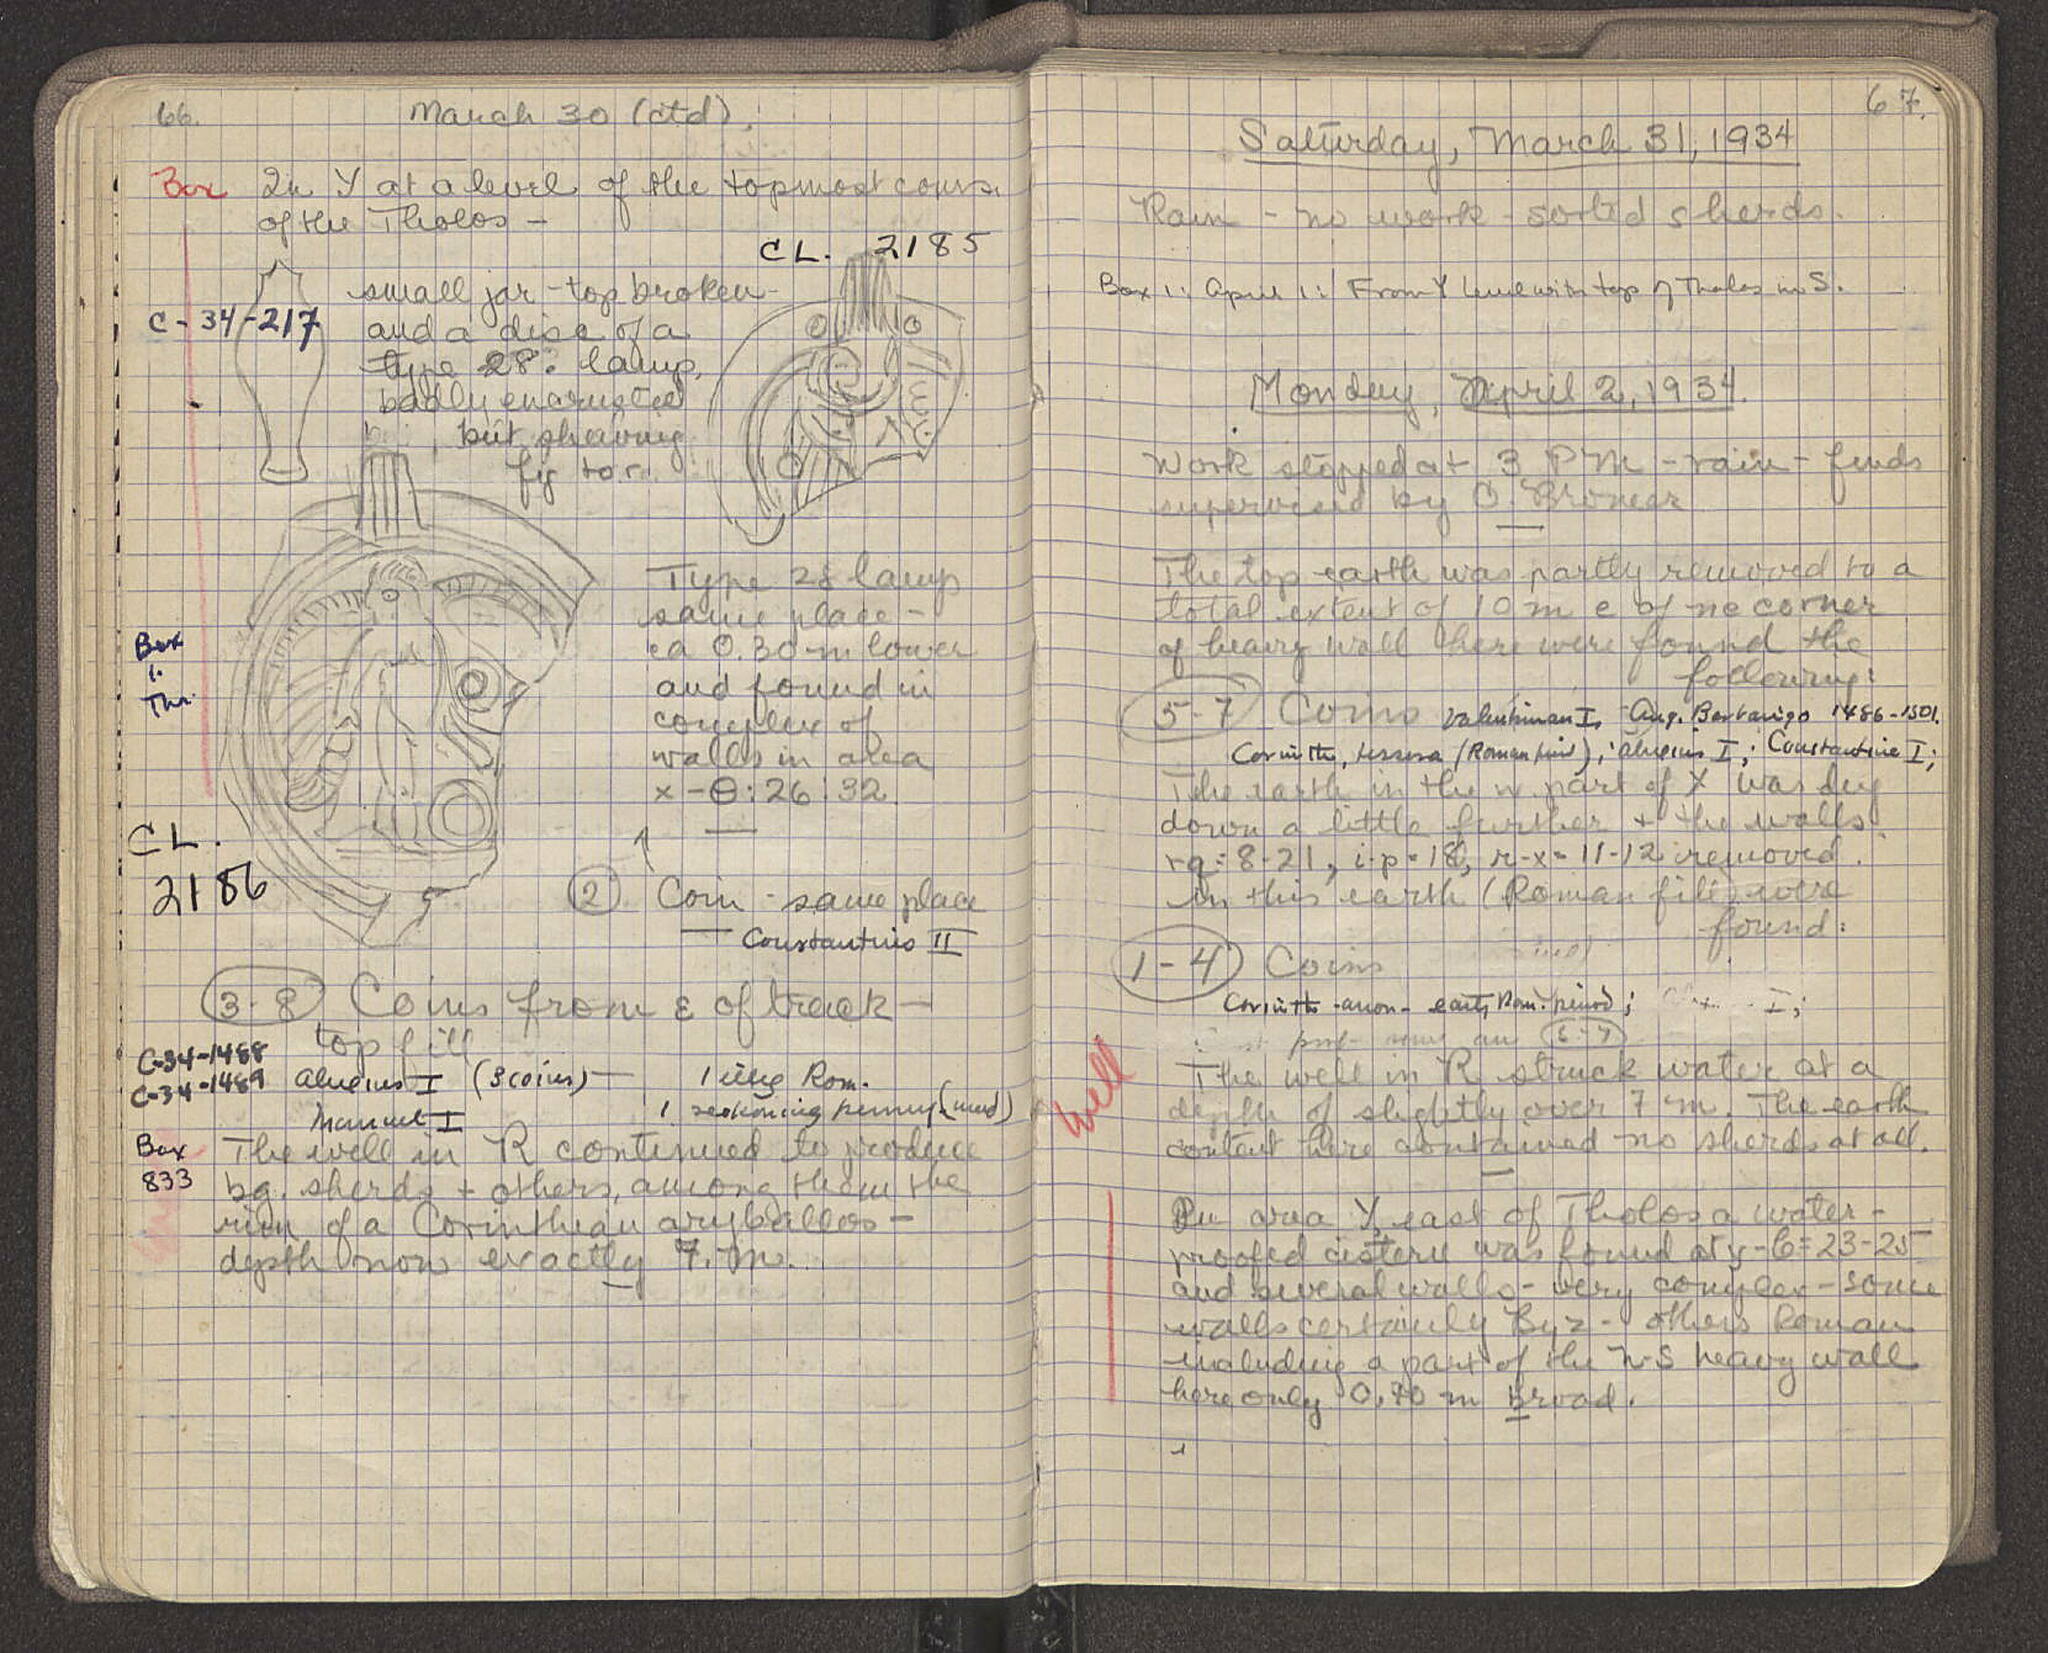 66.
March 30 (ctd).
Box In Y at a level of the topmost course
of the Tholos -
CL. 2185
C-34-217
small jar - top broken -
and a disc of a
type 28. lamp,
badly encrusted
but showing
fig to r.
Type 28 lamp
same place -
ca 0.30 m lower
and found in
complex of
walls in area
x-Θ:26:32
Box
1:
CL.
2186
2 Coin - same place
Constantius II
3-8 Coins from E of track -
top fill
C-34-1488
C-34-1489
Alexius I (3 coins) - 1 Rom.
Manuel I 1 reckoning penny (med)
Box
833
The well in R continued to produce
bg. sherds + others, among them the
rim of a Corinthian aryballos -
depth now exactly 7. m.
67.
Saturday, March 31, 1934
Rain - no work - sorted sherds.
Box 1: April 1: From Y level with top of Tholos in S.
Monday, April 2, 1934.
Work stopped at 3 PM - rain - finds
supervised by O. Broneer
The top earth was partly removed to a
total extent of 10 m e of ne corner
of heavy wall here were found the
following:
5-7 Coins Valentinian I, Aug. Barbarigo 1486-1501.
Corinth, tessera (Roman ); Alexius I; Constantine I;
The earth in the n. part of X was dug
down a little further + the walls
r-q = 8-21, i-p = 18, r-x = 11-12 removed.
in this earth (Roman fill) were
found:
1-4 Coins
Corinth - anon - early Rom. period; I;
The well in R struck water at a
depth of slightly over 7 m. The earth
content here contained no sherds at all.
Well
In area Y, east of Tholos a water-
proofed cistern was found at y-6=23-25
and several walls - very complex - some
walls certainly Byz - others Roman
including a part of the N-S heavy wall
here only 0.70 m broad.